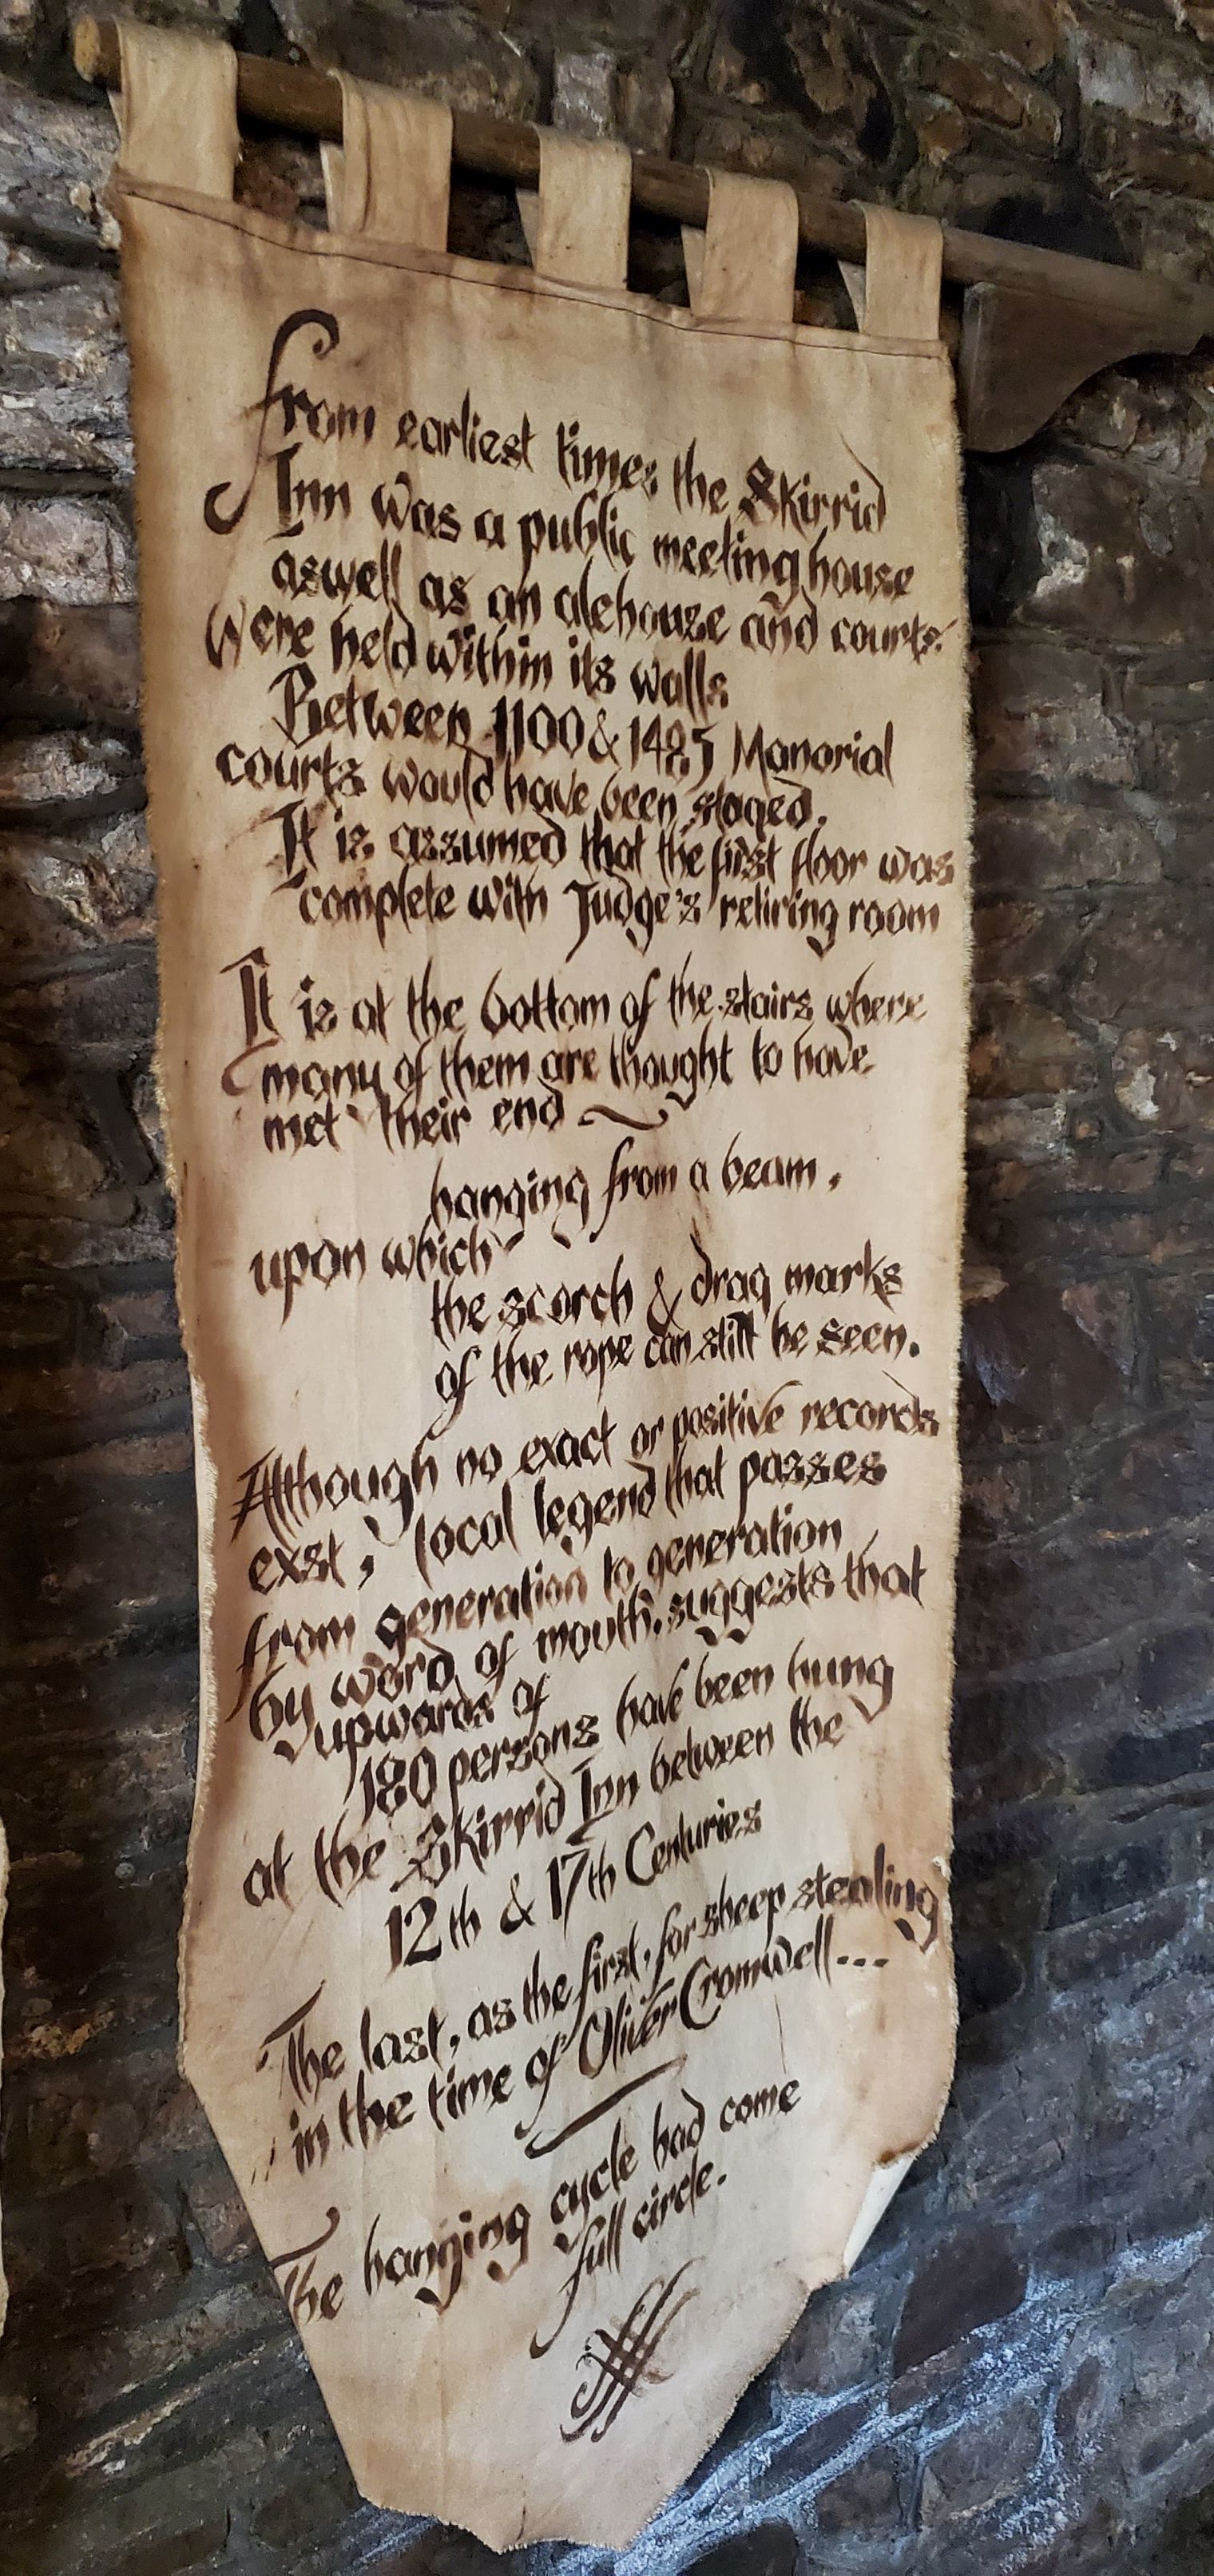 From earliest times the Skirrid
Inn was a public meeting house
aswell as an alehouse and courts
were held within its walls
Between 1100 & 1485 Manorial
courts would have been staged.
It is assumed that the first floor was
complete with Judge's retiring room
It is at the bottom of the stairs where
many of them are thought to have
met their end ~
hanging from a beam,
upon which
the scorch & drag marks
of the rope can still be seen.
Although no exact or positive records
exst, local legend that passes
from generation to generation
by word of mouth, suggests that
upwards of
180 persons have been hung
at the Skirrid Inn between the
12th & 17th Centuries
The last, as the first, for sheep stealing
in the time of Oliver Cromwell...
The hanging cycle had come
full circle.